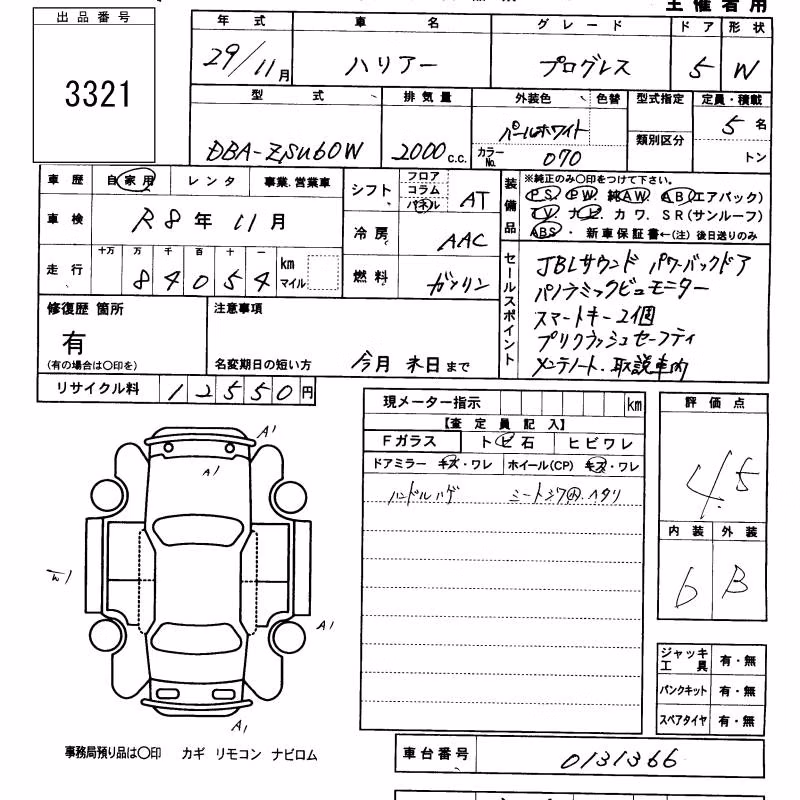 主催者用
出品番号
3321
年式 車名 グレード ドア 形状
29/11月 ハリアー プログレス 5 W
型式 排気量 外装色 色替 型式指定 定員・積載
DBA-ZSU60W 2000c.c. パールホワイト 類別区分 5名
カラーNo. 070 トン
車歴 自家用 レンタ 事業.営業車
車検 R8年11月
走行 十万 万 千 百 十 一 km マイル
84054
シフト フロア コラム パネル AT
冷房 AAC
燃料 ガソリン
装備品
※純正のみ〇印をつけて下さい。
PS. PW. 純AW. AB(エアバック)
TV. ナビ. カワ. SR(サンルーフ)
ABS・新車保証書←(注)後日送りのみ
セールスポイント
JBLサウンド パワーバックドア
パノラミックビュモニター
スマートキー2個
プリクラッシュセーフティ
メンテノート.取説車内
修復歴 箇所
有
(有の場合は〇印を)
注意事項
名変期日の短い方 今月末日まで
リサイクル料 12550円
現メーター指示 km
【査定員記入】
Fガラス トビ石 ヒビワレ
ドアミラー キズ・ワレ ホイール(CP) キズ・ワレ
ハンドルハゲ シートシワ大.ヘタリ
評価点
4.5
内装 外装
6 B
A1
A1
W1
A1
A1
ジャッキ工具 有・無
パンクキット 有・無
スペアタイヤ 有・無
事務局預り品は〇印 カギ リモコン ナビロム
車台番号 0131366